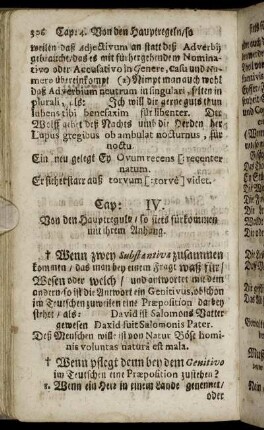 306 Cap: 4. Von den Hauptregeln/so
weilen daß Adjectivum an statt deß Adverbij
gebraucht/das es mit fürhergehendem Nomina-
tivo oder Accusativo in Genere, casu und Nu-
mero übereinkompt (2) Nimpt man auch wohl
daß Adverbium neutrum in singulari, selten in
plurali, als: Ich will dir gerne guts thun
lubens tibi benefaxim für lubenter. Der
Wolff gehet deß Nachts umb die Herden her
Lupus gregibus obambulat nocturnus, für
noctu
Ein neu gelegt Ey Ovum recens [: recenter
natum.
Er sihet starr auß torvum [: torvè] videt.
Cap: IV.
Von den Hauptreguln/ so stets fürkommen
mit ihrem Anhang.
† Wenn zwey Substantiva zusammen
kommen/ das man bey einem Fragt waß für/
Wesen oder welch/ und antwortet mit dem
andern so ist die Antwort ein Genitivus, obschon
im Teutschen zuweilen eine Præposition darbey
stehet/ als: David ist Salomons Vatter
gewesen David fuit Salomonis Pater.
Deß Menschen will: ist von Natur Böse homi-
nis voluntas naturâ est mala.
† Wenn pflegt denn bey dem Genitivo
im Teutschen eine Præposition zustehen?
1. Wenn ein Herr in einem Lande genennet/
oder